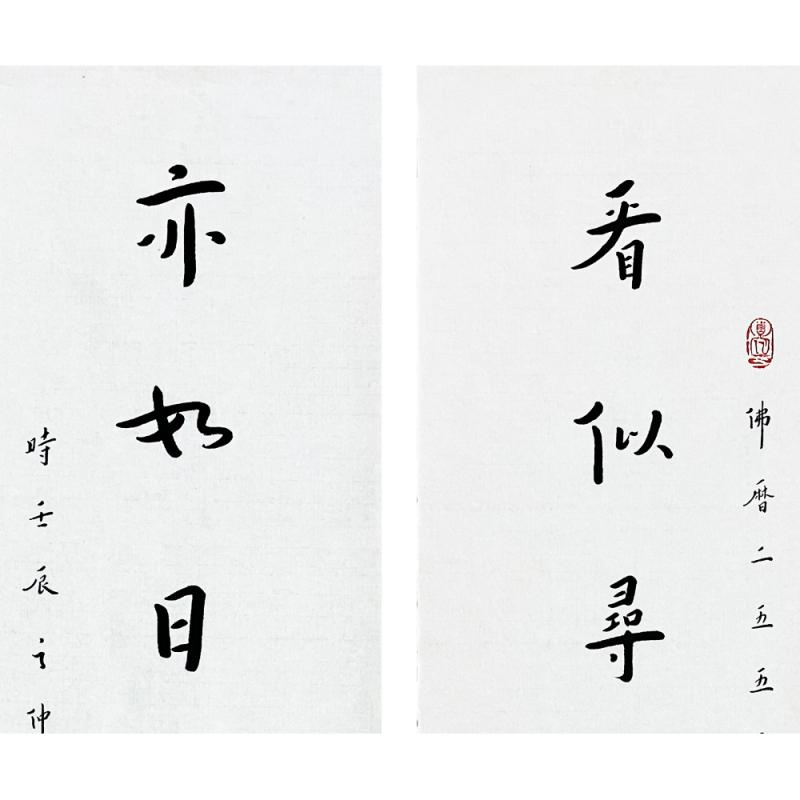 佛暦二五五
看似尋
亦如日
時壬辰之仲